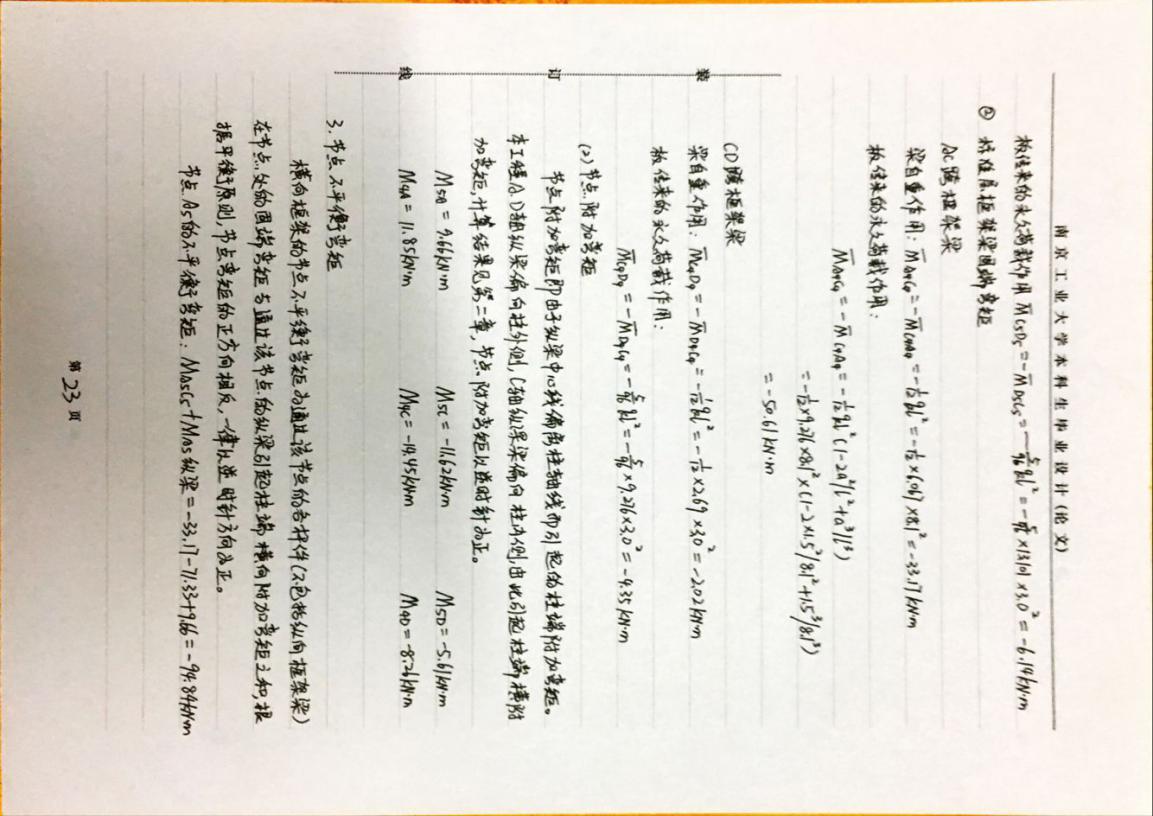 南京工业大学本科生毕业设计(论文)
板传来的永久荷载作用 M̄C5D5=-M̄D5C5=-5/96ql²=-5/96×13.101×3.0²=-6.14kN·m
② 标准层框架梁固端弯矩
AC跨框架梁
梁自重作用: M̄A4C4=-M̄C4A4=-1/12ql²=-1/12×6.067×8.1²=-33.17kN·m
板传来的永久荷载作用:
M̄A4C4=-M̄C4A4=-1/12ql²(1-2a²/l²+a³/l³)
=-1/12×9.276×8.1²×(1-2×1.5²/8.1²+1.5³/8.1³)
=-50.61kN·m
CD跨框架梁
梁自重作用: M̄C4D4=-M̄D4C4=-1/12ql²=-1/12×2.69×3.0²=-2.02kN·m
板传来的永久荷载作用:
M̄C4D4=-M̄D4C4=-5/96ql²=-5/96×9.276×3.0²=-4.35kN·m
(2)节点附加弯矩
节点附加弯矩即由于纵梁中心线偏离柱轴线而引起的柱端附加弯矩。
本工程A、D轴纵梁偏向柱外侧,C轴纵梁偏向柱内侧,由此引起柱端横附
加弯矩,计算结果见第二章,节点附加弯矩以逆时针为正。
M5A=9.66kN·m M5C=-11.62kN·m M5D=-5.61kN·m
M4A=11.85kN·m M4C=-14.45kN·m M4D=-8.26kN·m
3.节点不平衡弯矩
横向框架的节点不平衡弯矩为通过该节点的各杆件(不包括纵向框架梁)
在节点处的固端弯矩与通过该节点的纵梁引起柱端横向附加弯矩之和,根
据平衡原则,节点弯矩的正方向相反,一律以逆时针方向为正。
节点A5的不平衡弯矩: MA5C5+MA5纵梁=-33.17-71.33+9.66=-94.84kN·m
装
订
线
第23页